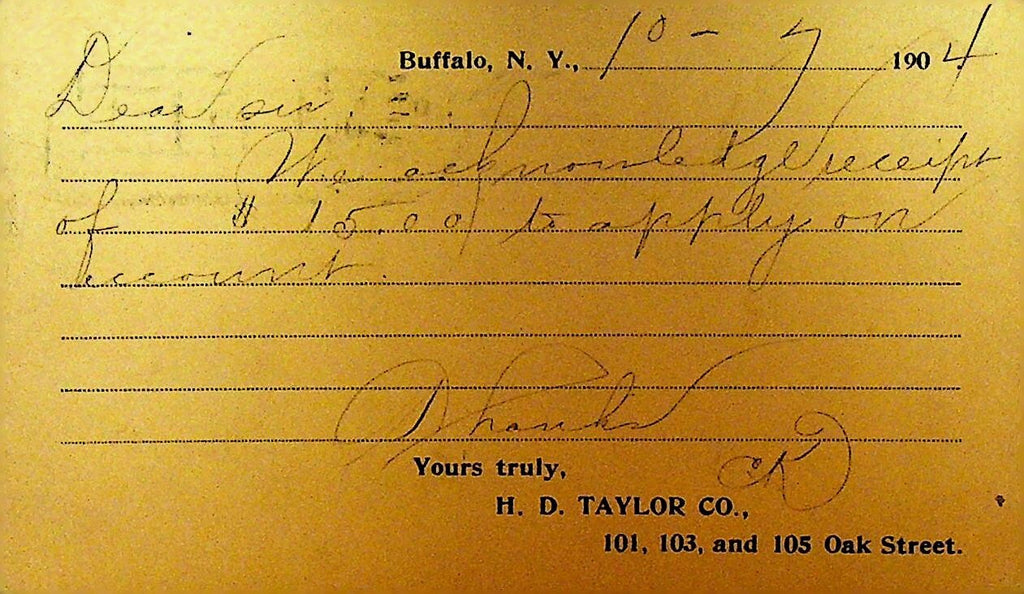 Buffalo, N. Y., 10 - 7 1904
Dear sir :
We acknowledge receipt
of $ 15.00 to apply on
account.
Thanks
Yours truly,
H. D. TAYLOR CO.,
101, 103, and 105 Oak Street.